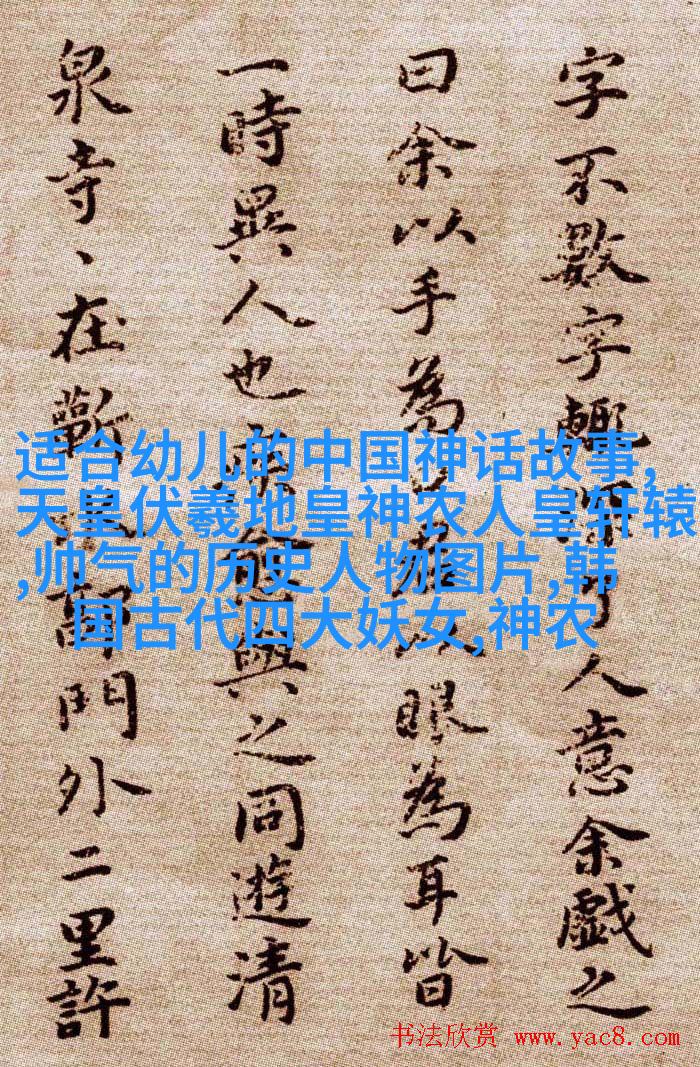 字不數字人意余戲之
曰余以手為以眼為耳皆
一時異人也與之同遊清
泉寺、在蘄門外二里許
适合幼儿的中国神话故事,
天皇伏羲地皇神农人皇轩辕
,帅气的历史人物图片,韩
国古代四大妖女,神农
书法欣赏 www.yac8.com